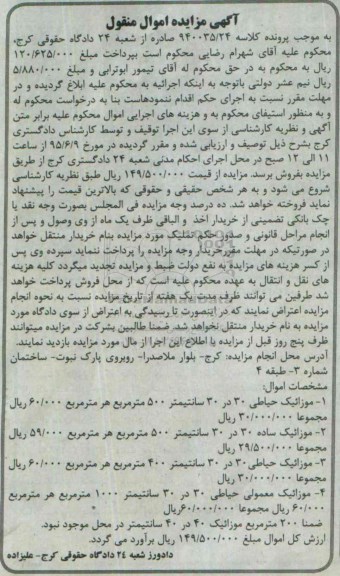 آگهی مزایده اموال منقول
به موجب پرونده کلاسه ۹۴۰۰۳۵/۲۴ صادره از شعبه ۲۴ دادگاه حقوقی کرج،
محکوم علیه آقای شهرام رضایی محکوم است بپرداخت مبلغ ۱۲۰/۶۲۵/۰۰۰
ریال به محکوم به در حق محکوم له آقای تیمور ابوترابی و مبلغ ۵/۸۸۰/۰۰۰
ریال نیم عشر دولتی باتوجه به اینکه اجرائیه به محکوم علیه ابلاغ گردیده و در
مهلت مقرر نسبت به اجرای حکم اقدام ننموده‌است بنا به درخواست محکوم له
و به منظور استیفای محکوم به و هزینه های اجرایی اموال محکوم علیه برابر متن
آگهی و نظریه کارشناسی از سوی این اجرا توقیف و توسط کارشناس دادگستری
کرج بشرح ذیل توصیف و ارزیابی شده و مقرر گردیده در مورخ ۹۵/۶/۹ از ساعت
۱۱ الی ۱۲ صبح در محل اجرای احکام مدنی شعبه ۲۴ دادگستری کرج از طریق
مزایده بفروش برسد. مزایده از قیمت ۱۴۹/۵۰۰/۰۰۰ ریال طبق نظریه کارشناسی
شروع می شود و به هر شخص حقیقی و حقوقی که بالاترین قیمت را پیشنهاد
نماید فروخته خواهد شد. ده درصد وجه مزایده فی المجلس بصورت وجه نقد یا
چک بانکی تضمینی از خریدار اخذ و الباقی ظرف یک ماه از وی وصول و پس از
انجام مراحل قانونی و صدور حکم تملیک مورد مزایده بنام خریدار منتقل خواهد
در صورتیکه در مهلت مقرر خریدار وجه مزایده را پرداخت ننماید سپرده وی پس
از کسر هزینه های مزایده به نفع دولت ضبط و مزایده تجدید میگردد کلیه هزینه
های نقل و انتقال به عهده محکوم علیه است که از محل فروش پرداخت خواهد
شد طرفین می توانند ظرف مدت یک هفته از تاریخ مزایده نسبت به نحوه انجام
مزایده اعتراض نمایند که در اینصورت تا رسیدگی به اعتراض از سوی دادگاه مورد
مزایده به نام خریدار منتقل نخواهد شد. ضمنا طالبین بشرکت در مزایده میتوانند
ظرف پنج روز قبل از مزایده با اطلاع این اجرا از مال مورد مزایده بازدید نمایند.
آدرس محل انجام مزایده: کرج- بلوار ملاصدرا- روبروی پارک نبوت- ساختمان
شماره ۳- طبقه ۴
مشخصات اموال:
۱- موزائیک حیاطی ۳۰ در ۳۰ سانتیمتر ۵۰۰ مترمربع هر مترمربع ۶۰/۰۰۰ ریال
مجموعا ۳۰/۰۰۰/۰۰۰ ریال
۲- موزائیک ساده ۳۰ در ۳۰ سانتیمتر ۵۰۰ مترمربع هر مترمربع ۵۹/۰۰۰ ریال
مجموعا ۲۹/۵۰۰/۰۰۰ ریال
۳- موزائیک حیاطی ۳۰ در ۳۰ سانتیمتر ۴۰۰ مترمربع هر مترمربع ۶۰/۰۰۰ ریال
مجموعا ۳۰/۰۰۰/۰۰۰ ریال
۴- موزائیک معمولی حیاطی ۳۰ در ۳۰ سانتیمتر ۱۰۰۰ مترمربع هر مترمربع
۶۰/۰۰۰ ریال مجموعا ۶۰/۰۰۰/۰۰۰ریال
ضمنا ۲۰۰ مترمربع موزائیک ۴۰ در ۴۰ سانتیمتر در محل موجود نبود.
ارزش کل اموال مبلغ ۱۴۹/۵۰۰/۰۰۰ ریال برآورد می گردد.
دادورز شعبه ۲۴ دادگاه حقوقی کرج- علیزاده